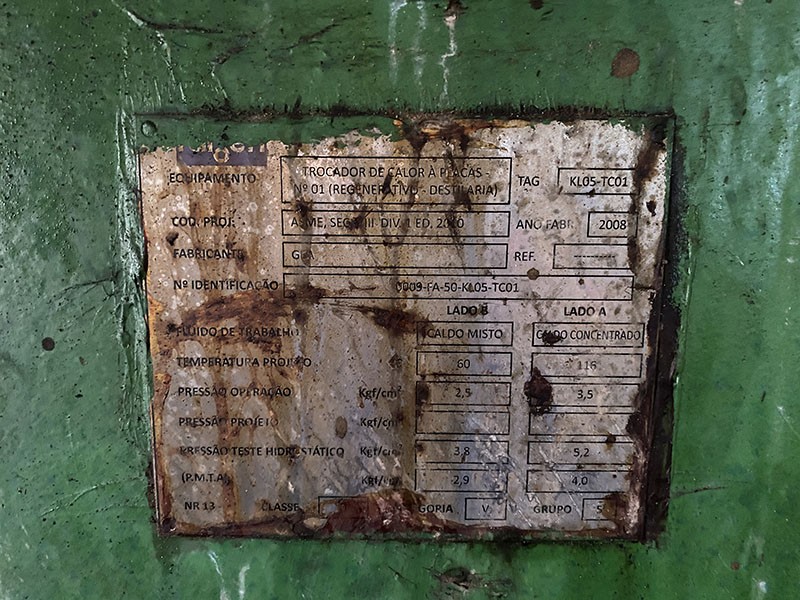 EQUIPAMENTO TROCADOR DE CALOR À PLACAS - Nº 01 (REGENERATIVO - DESTILARIA) TAG KL05-TC01
COD. PROJ. ASME, DIV. 1 ED. ANO FABR. 2008
FABRICANTE REF. -----------
Nº IDENTIFICAÇÃO 0009-FA-50-KL05-TC01
LADO B LADO A
FLUIDO DE TRABALHO CALDO MISTO CALDO CONCENTRADO
TEMPERATURA PROJETO 60 116
PRESSÃO OPERAÇÃO Kgf/cm² 2,5 3,5
PRESSÃO PROJETO Kgf/cm²
PRESSÃO TESTE HIDROSTÁTICO Kgf/cm² 3,8 5,2
(P.M.T.A) Kgf/cm² 2,9 4,0
NR 13 CLASSE GORIA V GRUPO